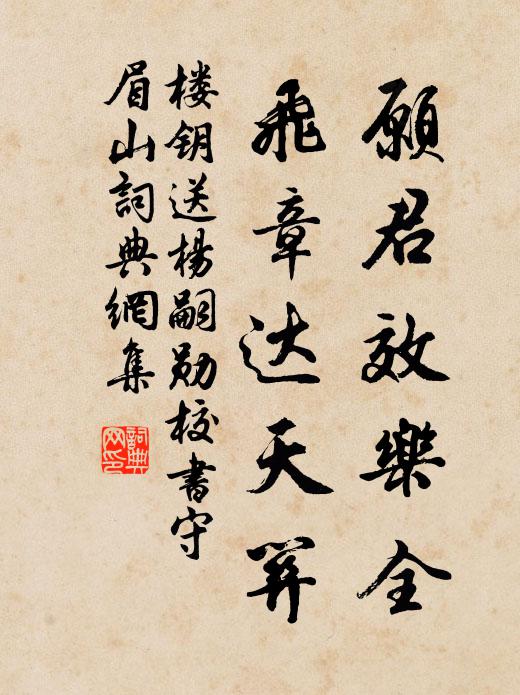 願君效樂全
飛章达天
楼钥送楊嗣勋校書守
眉山詞典網集
詞典网印